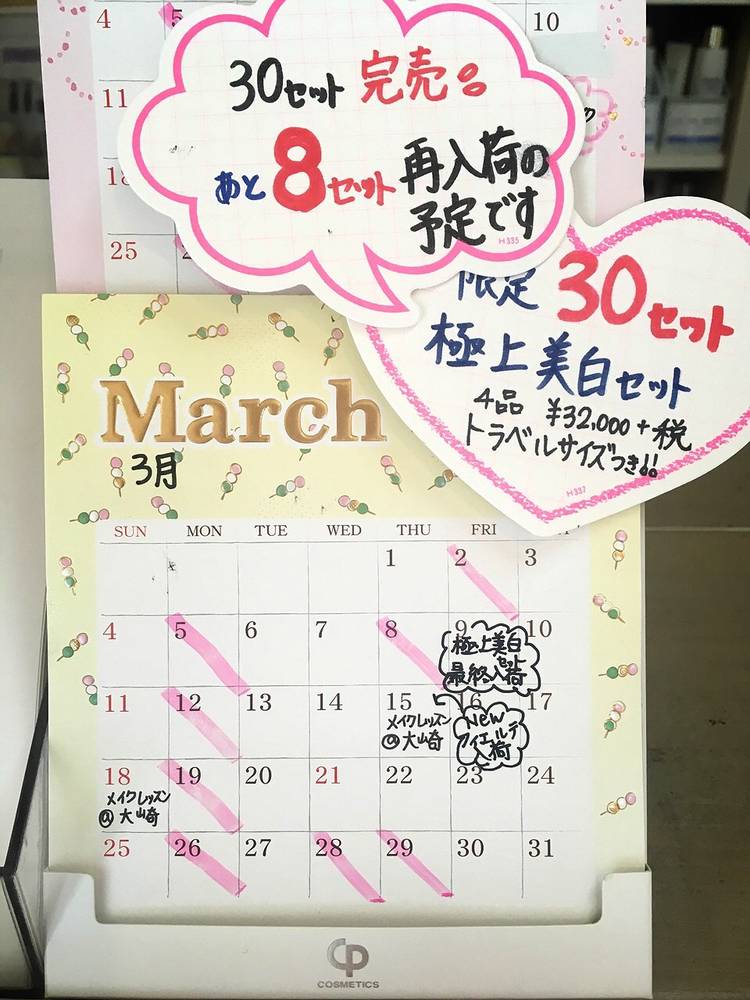 4 5 10
11
18
25 2
30セット 完売。
あと 8セット 再入荷の
予定です
H335
限定 30セット
極上美白セット
4品 ¥32,000+税
トラベルサイズつき!!
H337
March
3月
SUN MON TUE WED THU FRI
1 2 3
4 5 6 7 8 9 10
極上美白
セット
最終入荷
11 12 13 14 15 16 17
メイクレッスン
@大山崎
New
入荷
18 19 20 21 22 23 24
メイクレッスン
@大山崎
25 26 27 28 29 30 31
CP
COSMETICS